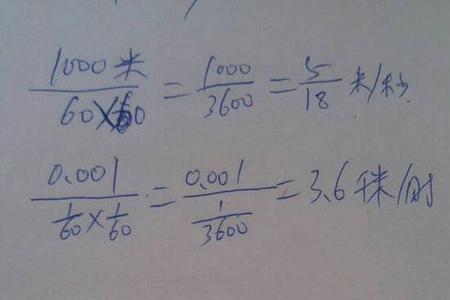 1000米/60×60 = 1000/3600 = 5/18 米/秒
0.001/(1/60×1/60) = 0.001/(1/3600) = 3.6 千米/时